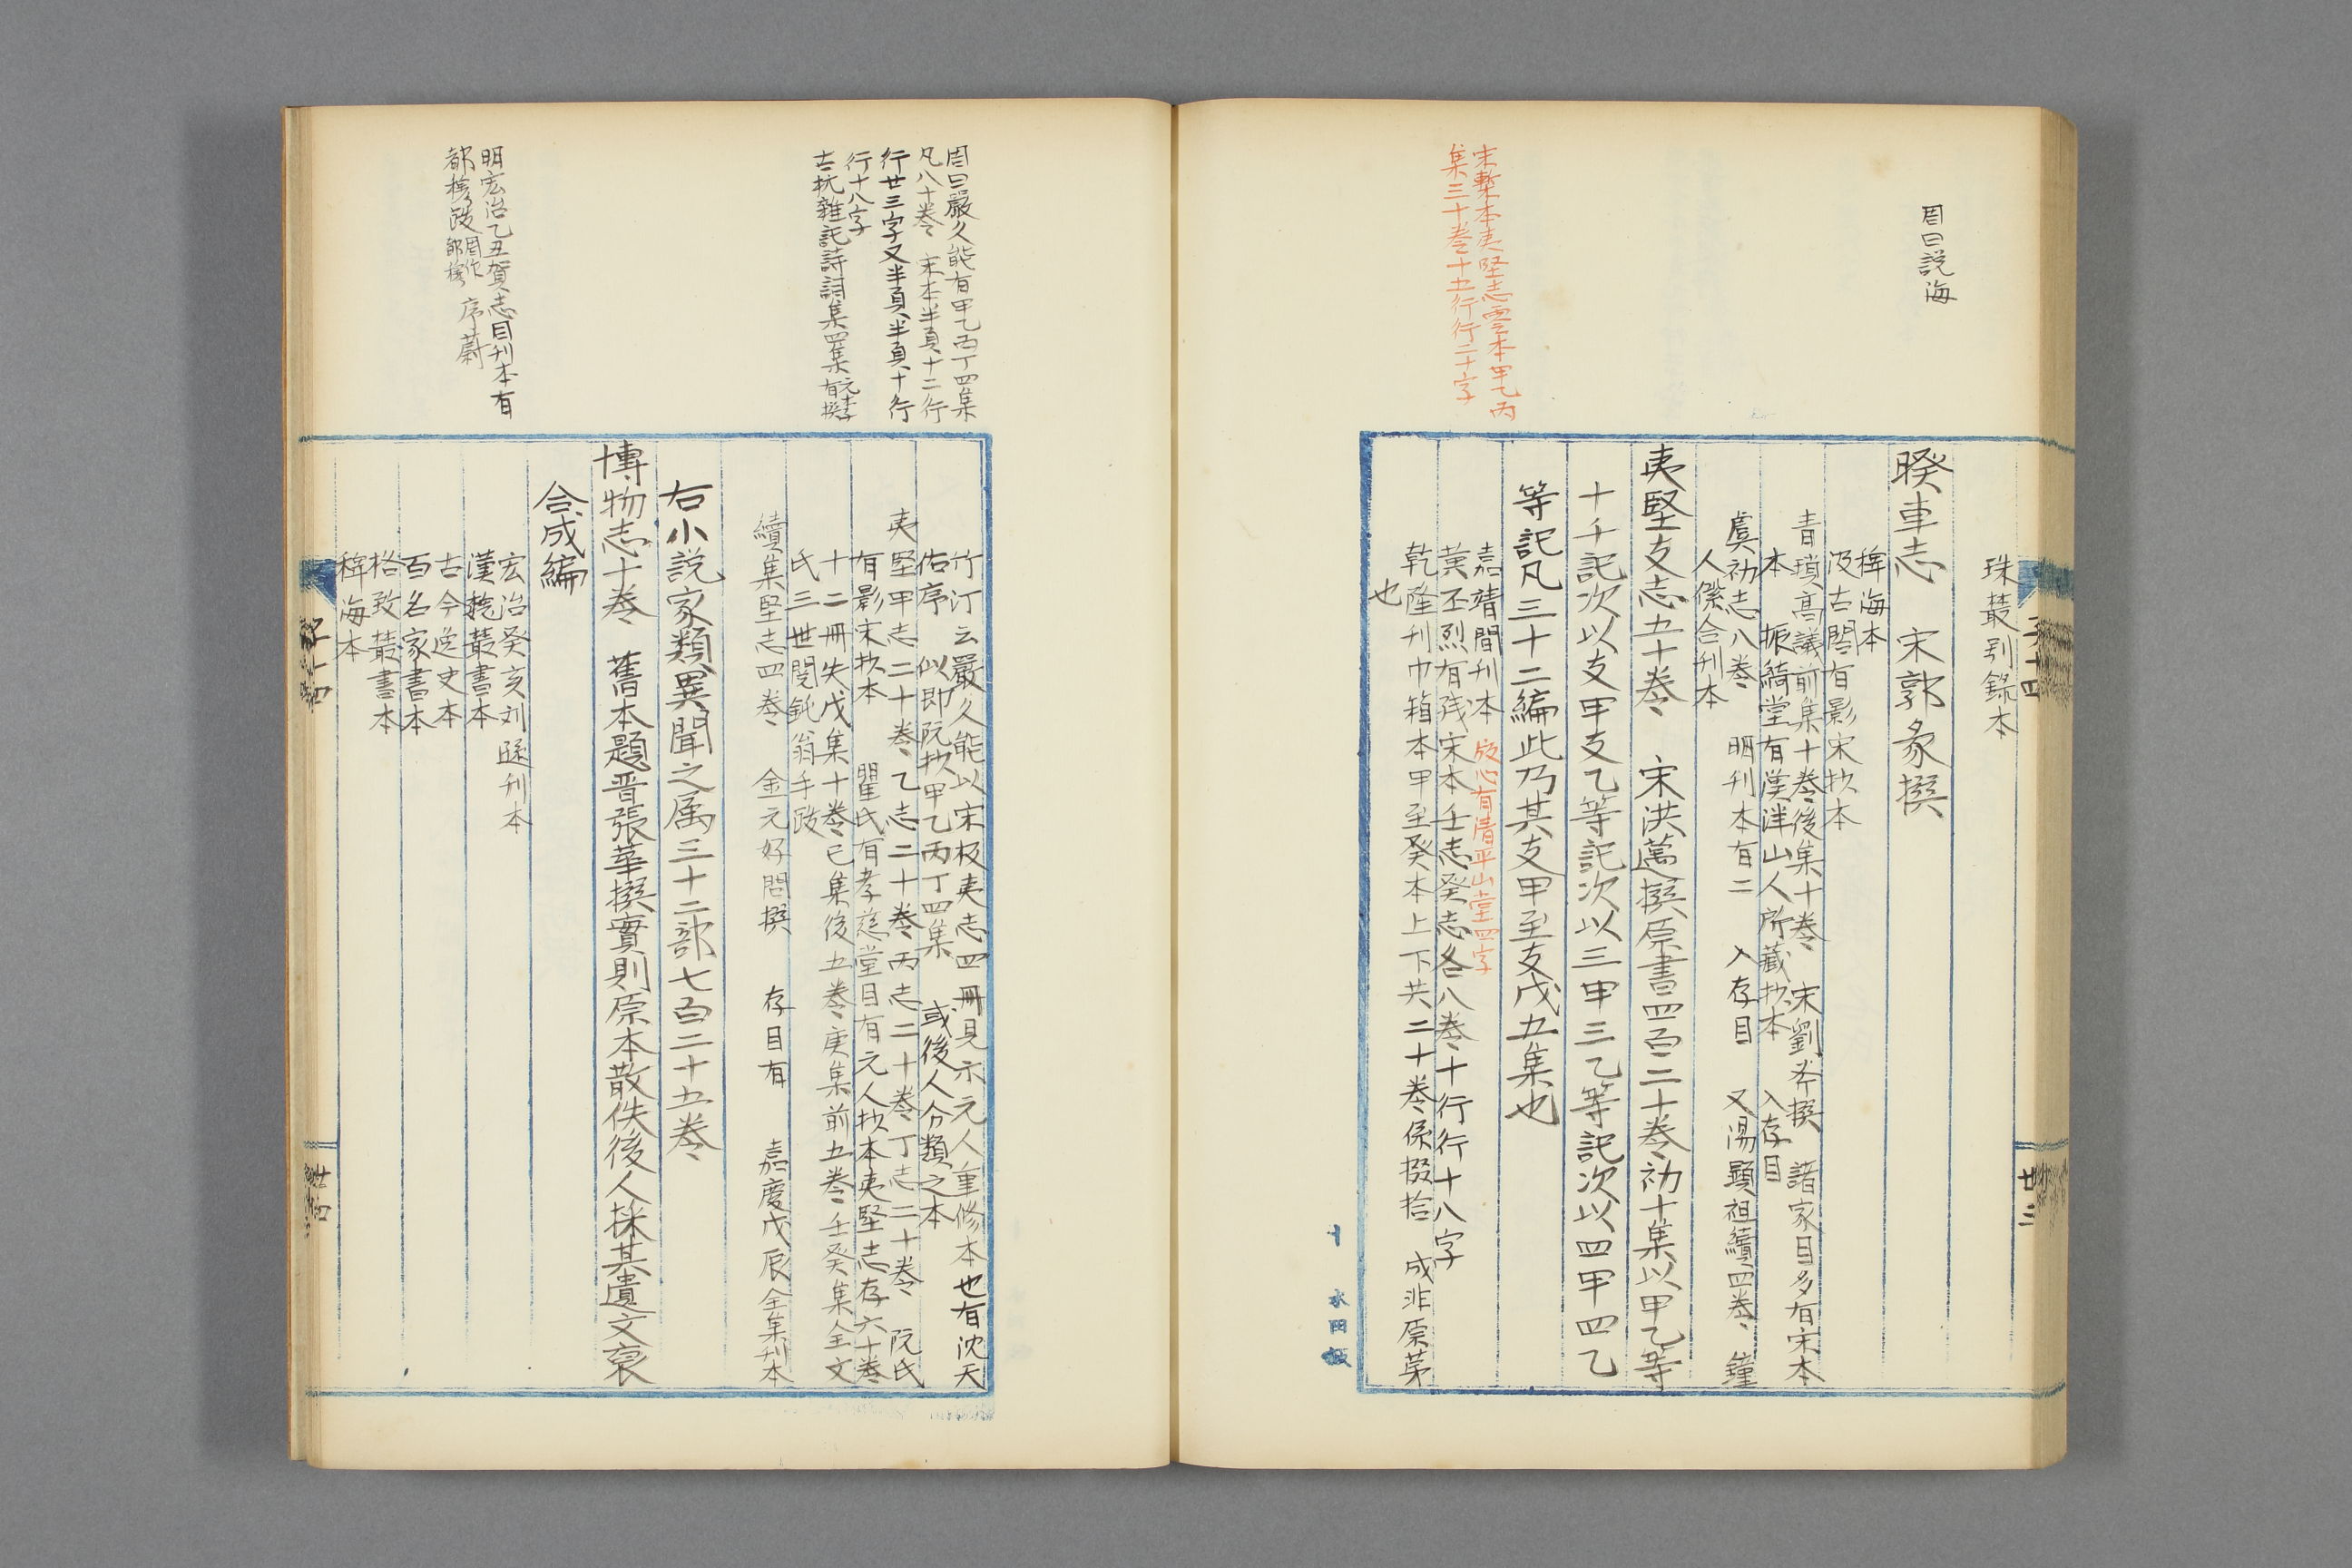 周曰說海
宋槧本夷堅志四本甲乙丙
集三十卷十五行行二十字
珠叢別錄本
睽車志 宋郭彖撰
稗海本
汲古閣有影宋抄本
青瑣高議前集十卷後集十卷 宋劉斧撰 諸家目多有宋本
本 振綺堂有漢泮山人所藏抄本 入存目
虞初志八卷 明刊本有二 入存目 又湯顯祖續四卷 鐘
人傑合刊本
夷堅支志五十卷 宋洪邁撰原書四百二十卷初十集以甲乙等
十千記次以支甲支乙等記次以三甲三乙等記次以四甲四乙
等記凡三十二編此乃其支甲至支戊五集也
嘉靖間刊本 版心有清平山堂四字
黃丕烈有殘宋本壬志癸志各八卷十行行十八字
乾隆刊巾箱本甲至癸本上下共二十卷係掇拾 成非原苐
也
子十四
廿三
周曰嚴久能有甲乙丙丁四集
凡八十卷 宋本半頁十二行
行廿三字又半頁半頁十行
行十八字
古杭雜記詩詞集四集 元李有撰
明宏治乙丑賀志目刊本有
都穆跋 周作都穆 序蔚
竹汀云嚴久能以宋板夷志四冊見示元人重修本也有沈天
佑序 似即阮抄甲乙丙丁四集 或後人分類之本
夷堅甲志二十卷乙志二十卷丙志二十卷丁志二十卷 阮氏
有影宋抄本 瞿氏有孝慈堂目有元人抄本夷堅志存六十卷
十二冊失戊集十卷已集後五卷庚集前五卷壬癸集全文
氏三世閱鈍翁手跋
續集堅志四卷 金元好問撰 存目有 嘉慶戊辰全集刊本
右小說家類異聞之属三十二部七百二十五卷
博物志十卷 舊本題晋張華撰實則原本散佚後人採其遺文裒
合成編
宏治癸亥刘 刊本
漢魏叢書本
古今逸史本
百名家書本
格致叢書本
稗海本
子十四
廿四